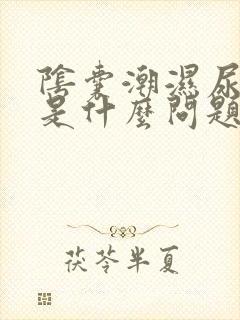 陰囊潮濕尿
是什麼問題
茯苓半夏